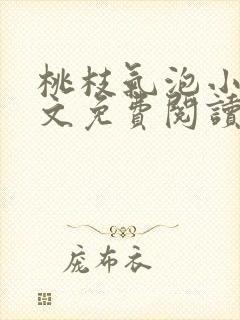 桃枝氣泡小
文免費閱讀
庞布衣